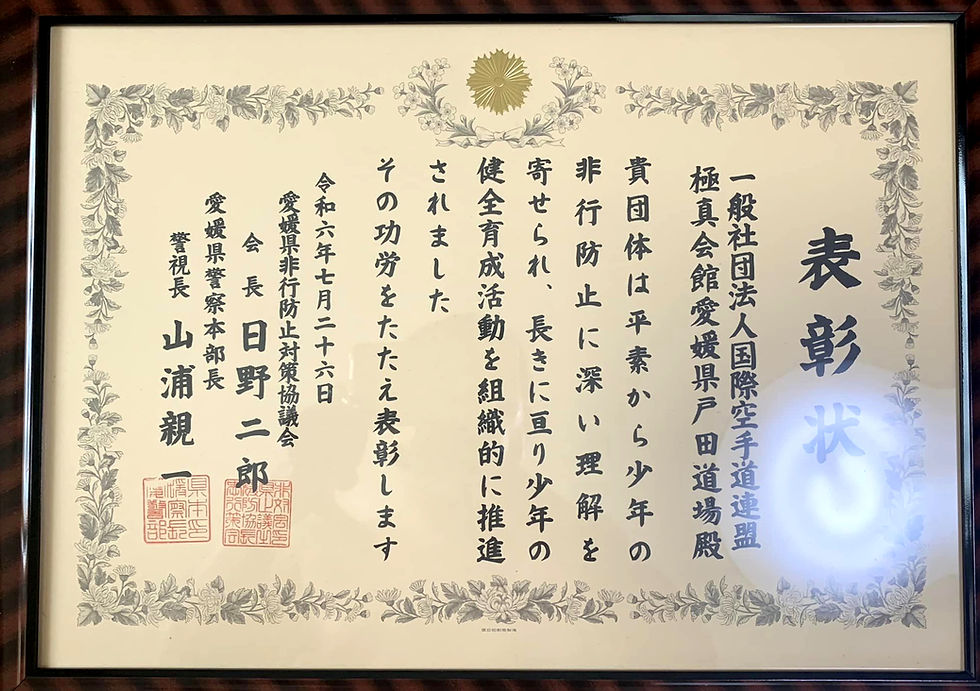 表彰状
一般社団法人国際空手道連盟
極真会館愛媛県戸田道場殿
貴団体は平素から少年の
非行防止に深い理解を
寄せられ、長きに亘り少年の
健全育成活動を組織的に推進
されました
その功労をたたえ表彰します
令和六年七月二十六日
愛媛県非行防止対策協議会
会長 日野二郎
愛媛県警察本部長
警視長 山浦親一